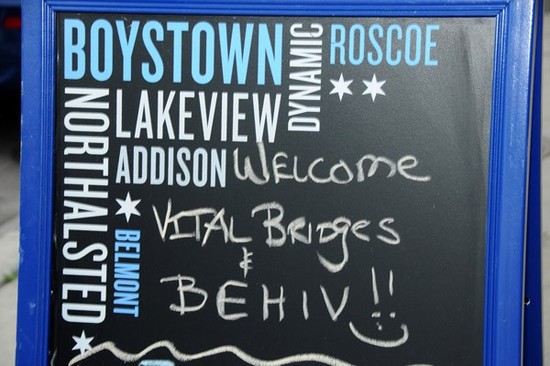 BOYSTOWN
DYNAMIC
ROSCOE
NORTHALSTED
LAKEVIEW
ADDISON
BELMONT
WELCOME
VITAL BRIDGES
&
BEHIV!!